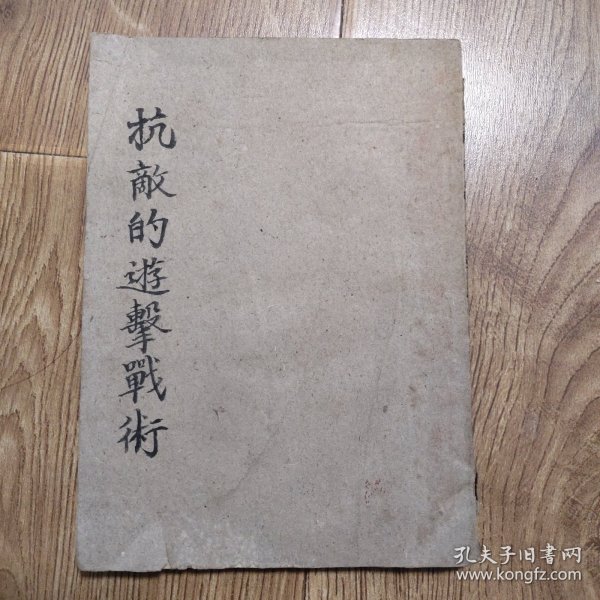 抗敵的遊擊戰術
孔夫子旧書网
www.kongfz.com